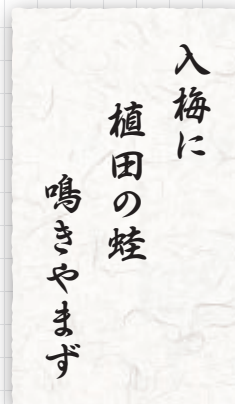 入梅に
植田の蛙
鳴きやまず